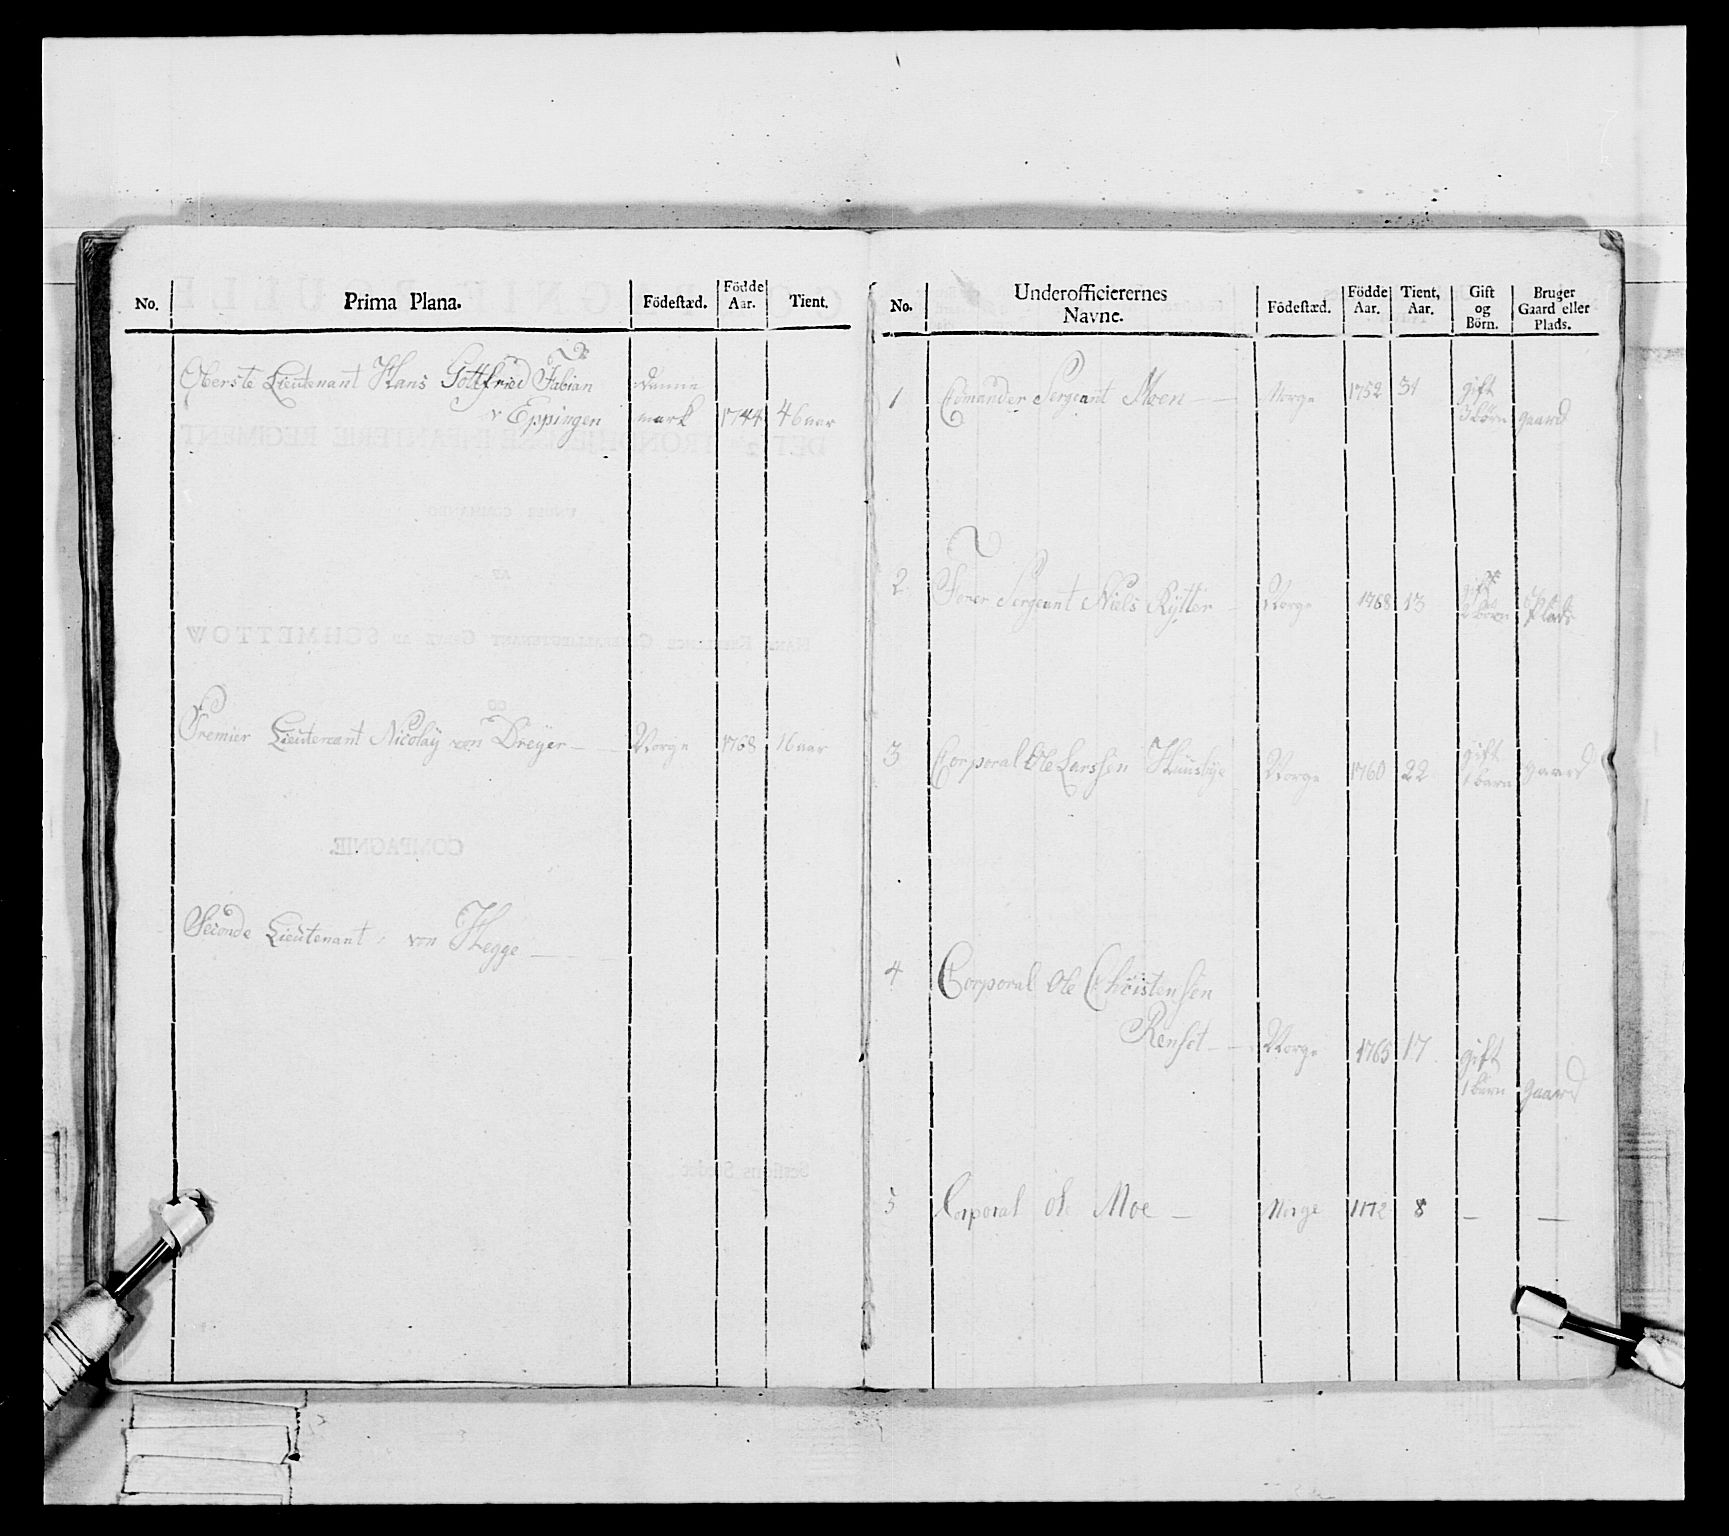 No. Prima Plana. Födestæd. Födde Aar. Tient.
Oberste Lieutenant Hans Gottfried Fabian
v Eppingen Danne
mark 1744 46 aar
Premier Lieutenant Nicolaÿ von Dreÿer — Norge 1768 16 aar
Seconde Lieutenant von Hegge —
No. Underofficierernes Navne. Födestæd. Födde Aar. Tient, Aar. Gift og Börn. Bruger Gaard eller Plads.
1 Comander Sergeant Moen — Norge 1752 31 gift
3 börn gaard
2 Sergeant Niels Rÿtter — Norge 1768 13 gift
2 börn Plads
3 Corporal Ole Larssen Huusbye Norge 1760 22 gift
1 barn gaard
4 Corporal Ole Christensen
Renset — Norge 1765 17 gift
1 barn gaard
5 Corporal Ole Moe — Norge 1772 8 — —